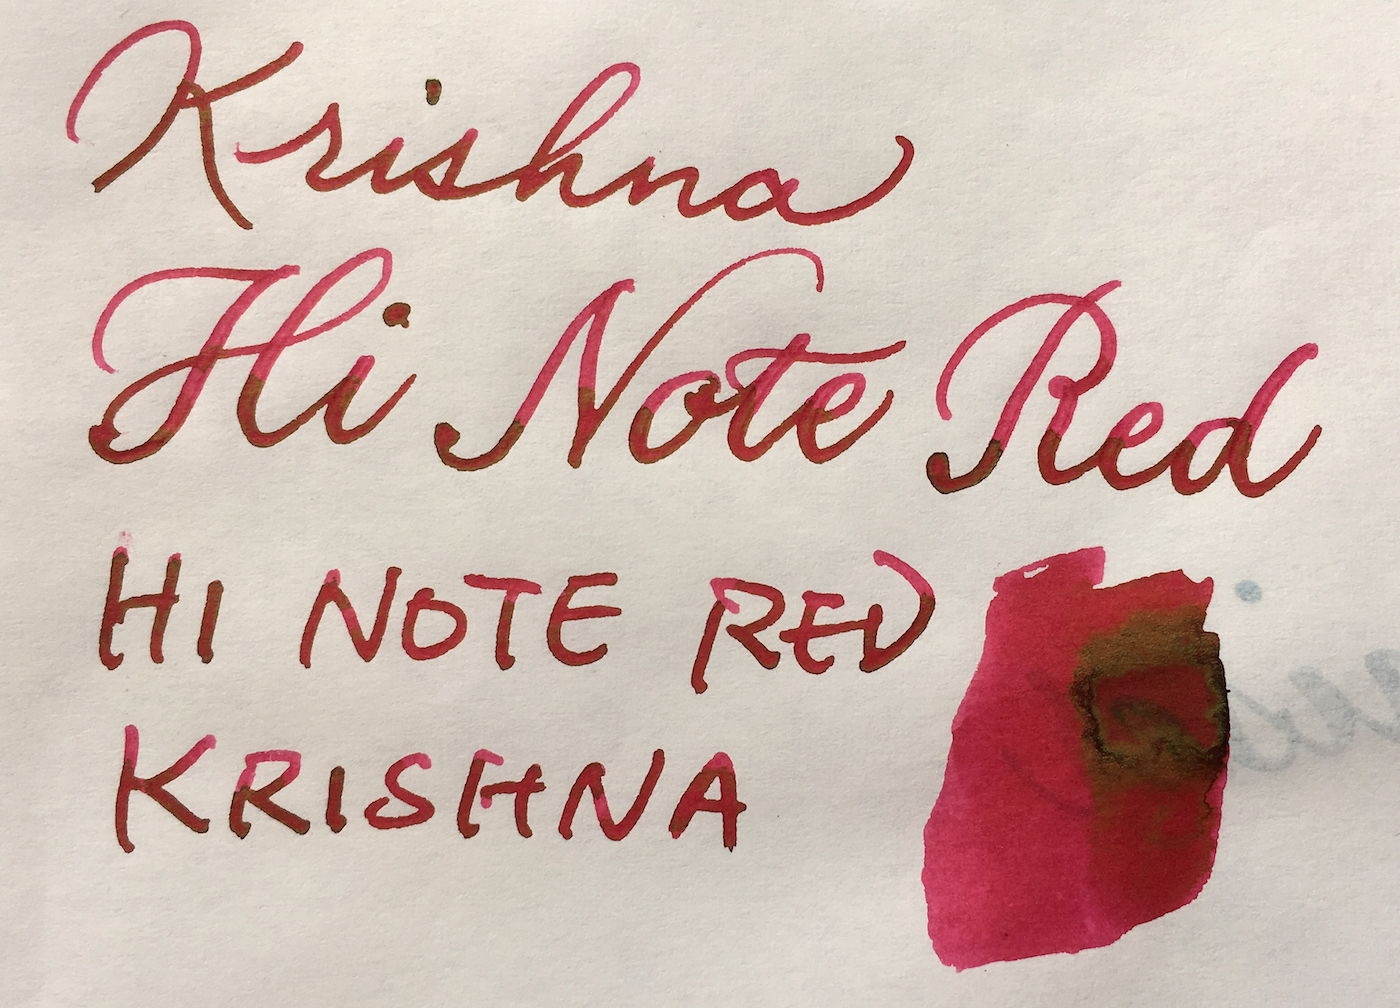 Krishna
Hi Note Red
HI NOTE RED
KRISHNA